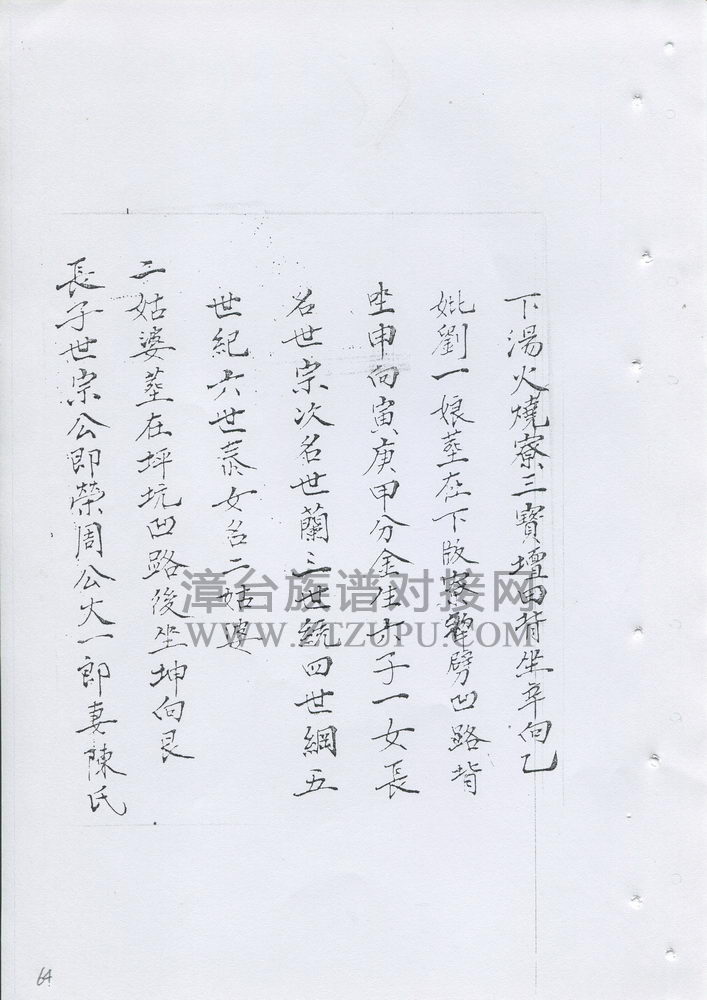 下湯火燒寮三寳壇田背坐辛向乙
妣劉一娘塟在下版寮劈凹路背
坐申向寅庚甲分金生六子一女長
名世宗次名世蘭三世統四世綱五
世紀六世泰女名二姑婆
二姑婆塟在坪坑凹路後坐坤向艮
長子世宗公即榮周公大一郎妻陳氏
漳台族谱对接网
WWW.ZTZUPU.COM
64